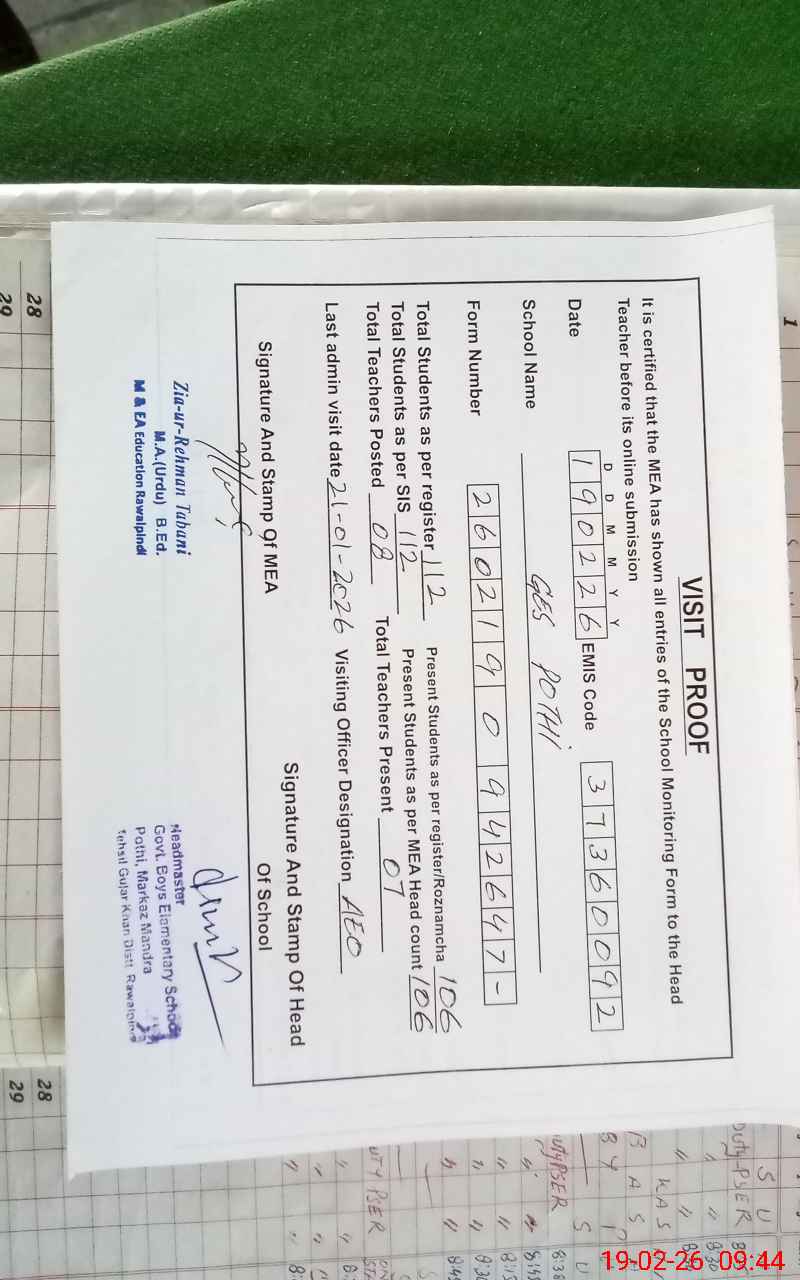 VISIT PROOF
It is certified that the MEA has shown all entries of the School Monitoring Form to the Head
Teacher before its online submission
D D M M Y Y
Date 190226 EMIS Code 37360092
School Name GES POTHI
Form Number 2602190942647-
Total Students as per register 112 Present Students as per register/Roznamcha 106
Total Students as per SIS 112 Present Students as per MEA Head count 106
Total Teachers Posted 08 Total Teachers Present 07
Last admin visit date 21-01-2026 Visiting Officer Designation AEO
Signature And Stamp Of MEA
Signature And Stamp Of Head
Of School
Zia-ur-Rehman Tabani
M.A.(Urdu) B.Ed.
M & EA Education Rawalpindi
Headmaster
Govt. Boys Elementary School
Pothi, Markaz Mandra
Tehsil Gujar Khan Distt Rawalpindi
1
28
29
28
29
19-02-26 09:44